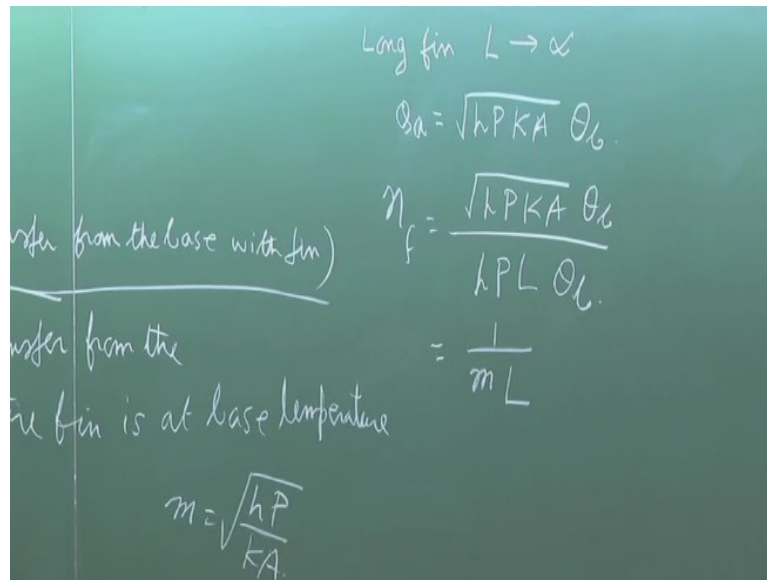 Long fin L → ∝
Qa = √hPKA θb.
ηf = √hPKA θb / hPL θb.
= 1 / mL
from the base with fin)
from the
fin is at base temperature
m = √hP/kA.